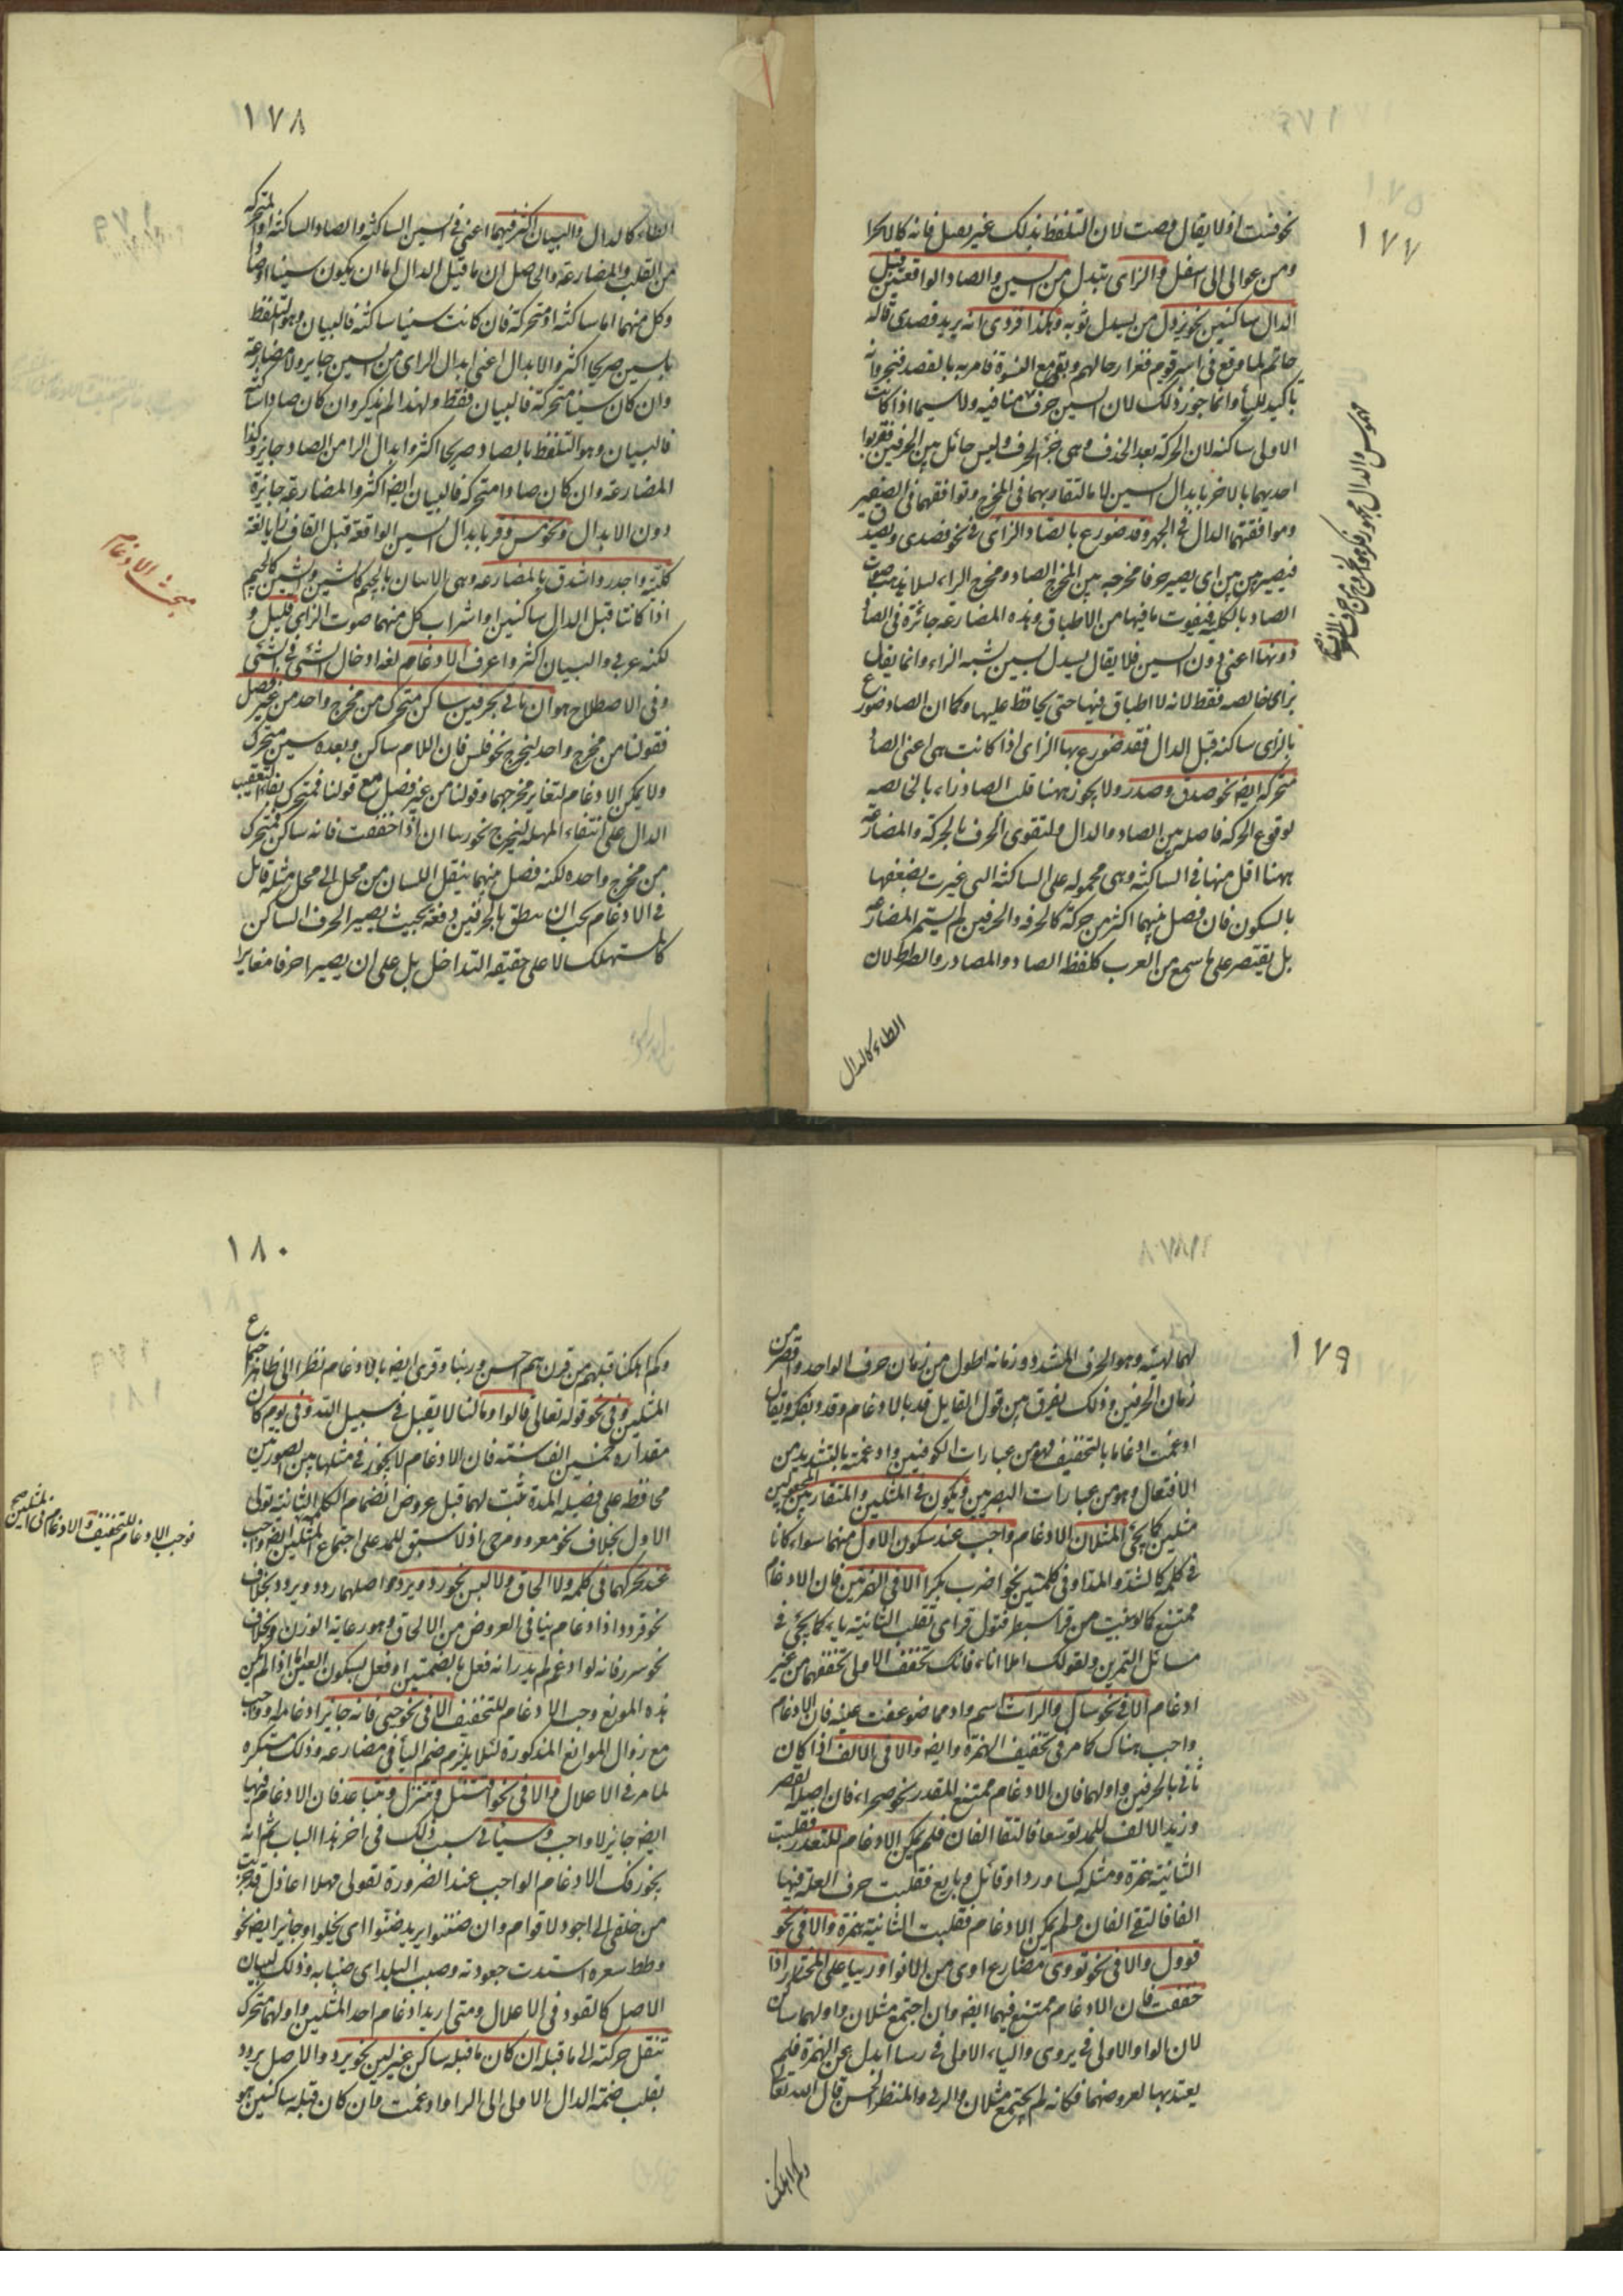 ١٧٧
ومن عوالى الى اسفل والزاى تبدل من السين والصاد الواقعتين قبل
الدال ساكنين نحو يزدل من يسدل ثوبه وهكذا فزدى انه يريد فصدى قاله
حاتم لما وقع فى اسر قوم فغزا رجالهم وبقى مع النسوة فامر به بالفصد فنحر وانه
تاكيد للياء وانما جوز ذلك لان السين حرف منافيه ولا سيما اذا كانت
الاولى ساكنه لان الحركة بعد الحذف وهى جزء الحرف وليس حائل بين الحرفين فقربوا
احديهما بالاخر بابدال السين لا ما لتقاربهما فى المخرج وتوافقهما فى الصفير
وموافقتهما الدال فى الجهر وقد ضورع بالصاد الزاى فى نحو فصدى ويصدق
فيصير بين بين اى يصير حرفا مخرجه بين المخرج الصاد ومخرج الزاء لئلا يذهب صوت
الصاد بالكلية فيفوت ما فيها من الاطباق وهذه المضارعة جائزة فى الصاد
دونها اعنى دون السين فلا يقال يسدل بسين يشبه الزاء وانما يقال
بزاى خالصه فقط لانه لا اطباق فيها حتى يحافظ عليها وكما ان الصاد ضورع
بالزاى ساكنه قبل الدال فقد ضورع بها الزاى اذا كانت هى اعنى الصاد
متحركة ايضا نحو صدق وصدر ولا يجوز ههنا قلب الصاد زاء بالخالصه
لوقوع الحركة فاصله بين الصاد والدال ولتقوى الحرف بالحركة والمضارعة
ههنا اقل منها فى الساكنة وهى محموله على الساكنة التى غيرت بضعفها
بالسكون فان فصل بينهما اكثر من حركة كالحرف والحرفين لم يستمر المضارعة
بل يقتصر على ما سمع من العرب كلفظ الصاد والمصادر والصراط لان
الطاء كالدال
١٧٨
الطاء كالدال والبيان اكثر فيهما اعنى فى السين الساكنة والصاد الساكنة او المتحركة
من القلب والمضارعة والحاصل ان ما قبل الدال اما ان يكون سينا او صادا
وكل منهما اما ساكنة او متحركة فان كانت سينا ساكنة فالبيان وهو التلفظ
بالسين صريحا اكثر والابدال اعنى ابدال الزاى من السين جايز ولا مضارعة
وان كان سينا متحركة فالبيان فقط ولهذا لم يذكر وان كان صادا ساكنة
فالبيان وهو التلفظ بالصاد صريحا اكثر وابدال الزا من الصاد جايز وكذا
المضارعة وان كان صادا متحركة فالبيان ايضا اكثر والمضارعة جايزة
دون الابدال ونحو مس زقر بابدال السين الواقعة قبل القاف زايا لغة
كلبية واجدر واشدق بالمضارعة وهى الاتيان بالجيم كالشين والشين كالجيم
اذا كانتا قبل الدال ساكنين او اشراب كل منهما صوت الزاى قليل و
لكنه عربى والبيان اكثر واعرف الادغام لغة ادخال الشئ فى الشئ
وفى الاصطلاح هو ان تاتى بحرفين ساكن فمتحرك من مخرج واحد من غير فصل
فقولنا من مخرج واحد ليخرج نحو فلس فان اللام ساكن وبعده سين متحرك
ولا يمكن الادغام لتغاير مخرجهما وقولنا من غير فصل مع قولنا فمتحرك بفاء التعقيب
الدال على انتفاء المهلة ليخرج نحو رييا اذا خففت فانه ساكن فمتحرك
من مخرج واحد لكنه فصل بينهما بنقل اللسان من محل الى محل مثله قابل
فى الادغام يجب ان ينطق بالحرفين دفعة بحيث يصير الحرف الساكن
كالمستهلك لا على حقيقة التداخل بل على ان يصيرا حرفا مغايرا
مبحث الادغام
١٧٩
لهما بهيئة وهو الحرف المشدد وزمانه اطول من زمان حرف الواحد واقصر من
زمان الحرفين وذلك يفرق بين قول القايل قد بالادغام وقدد بفكه ويقال
ادغمت ادغاما بالتخفيف وهو من عبارات الكوفيين وادغمته بالتشديد من
الافتعال وهو من عبارات البصريين ويكون فى المثلين والمتقاربين المجعولين
مثلين كما يجئ المثلان الادغام واجب عند سكون الاول منهما سواء كانا
فى كلمة كالشد والمد او فى كلمتين نحو اضرب بكرا الا فى الهمزتين فان الادغام
ممتنع كما لو بنيت من قرا سبطر فتقول قراى تقلب الثانية ياء كما يجئ فى
مسائل التمرين ولقولك املا اناء فانك تخفف الاولى تخففها من غير
ادغام الا فى نحو سأل والرآس اسم واد مما ضوعفت عينه فان الادغام
واجب هناك كما مر فى تخفيف الهمزة وايضا والا فى الالف اذا كان
ثانى الحرفين واولهما فان الادغام ممتنع للتعذر نحو صحراء فان اصله القصر
وزيد الالف للمد توسعا فالتقا الفان فلم يمكن الادغام للتعذر فقلبت
الثانية همزة ومثله كساء ورداء وقائل وبايع فقلبت حرف العلة فيها
الفا فالتقى الفان ولم يمكن الادغام فقلبت الثانية همزة والا فى نحو
قوول والا فى نحو تووى مضارع اوى من الافواء ورييا على المختار اذا
خففت فان الادغام ممتنع فيهما ايضا وان اجتمع مثلان واولهما ساكن
لان الواو الاولى فى يروى والياء الاولى فى رييا ابدل عن الهمزة فلم
يعتد بها لعروضهما فكانه لم يجتمع مثلان والرئى والمنظر الحسن قال الله تعالى
وكم اهلكنا
١٨٠
وكم اهلكنا قبلهم من قرن هم احسن وريا وقرى ايضا بالادغام نظرا الى ظاهر اجتماع
المثلين وفى نحو قوله تعالى قالوا وما لنا لا نقاتل فى سبيل الله وفى يوم كان
مقداره خمسين الف سنة فان الادغام لا يجوز فى مثلها بين الصورتين
محافظة على فضيلة المدة ثبت لهما قبل عروض انضمام الكلمة الثانية تولى
الاول بخلاف نحو مغزو ومرمى اذ لا سبق للمد على اجتماع المثلين ايضا واجب
عند تحركهما فى كلمة ولا الحاق ولا لبس نحو رد ويرد واصلهما ردد ويردد بخلاف
نحو قردد اذ ادغام ينافى العروض من الالحاق وهو رعاية الوزن وبخلاف
نحو سرر فانه لو ادغم لم يدر انه فعل بالضمتين او فعل بسكون العين اما اذا لم يكن
هذه الموانع وجب الادغام للتخفيف الا فى نحو حيى فانه جايز ادغامه لا واجب
مع زوال الموانع المذكورة لئلا يلزم ضم الياء فى مضارعه وذلك مستكره
لما مر فى الاعلال والا فى نحو اقتتل وتتنزل وتتباعد فان الادغام فيها
ايضا جايز لا واجب وسياتى سبب ذلك فى آخر هذا الباب ثم انه
يجوز فك الادغام الواجب عند الضرورة لقوله مهلا اعاذل قد جربت
من خلقى انى اجود لاقوام وان ضننوا يريد ضنوا اى بخلوا وجايز ايضا نحو
وقطط شعره اشتدت جعودته وضبب البلد اى ضبابه وذلك لبيان
الاصل كالقود فى الاعلال ومتى اريد ادغام احد المثلين واولهما متحرك
تنقل حركته الى ما قبله ان كان ما قبله ساكن غير لين نحو يرد والاصل يردد
بقلب ضمة الدال الاولى الى الراء وادغمت فان كان قبله ساكنين هو
فوجب الادغام للتخفيف والادغام فى المثلين صح